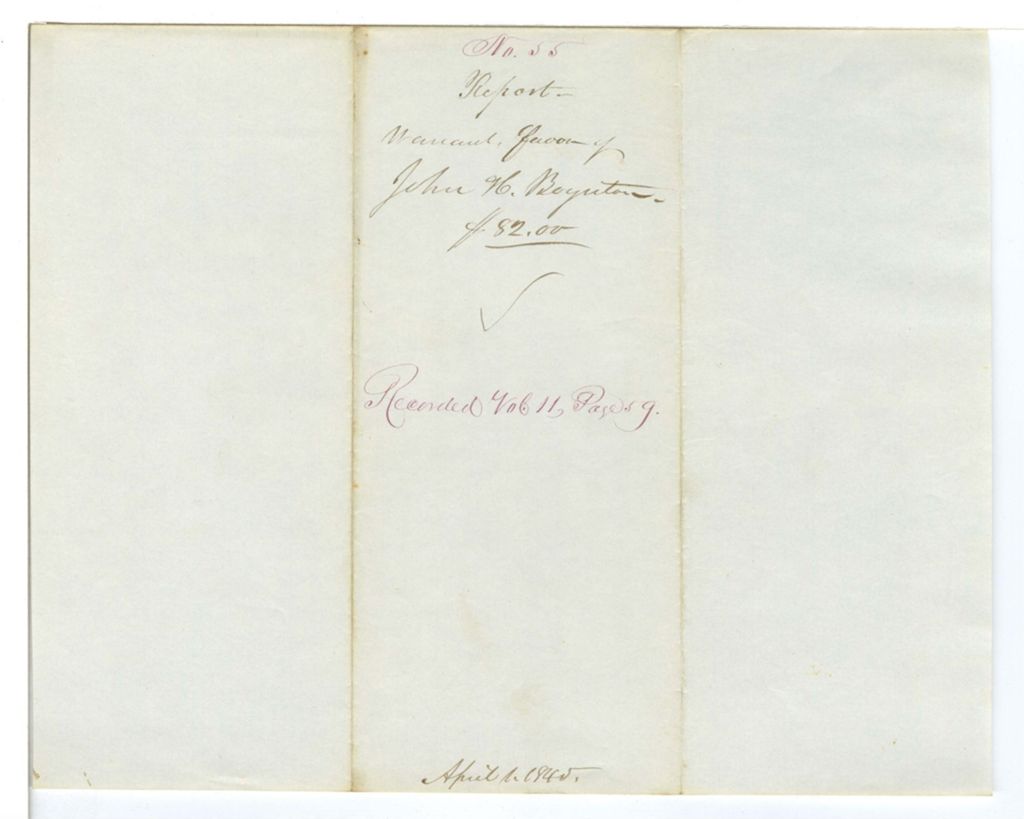 No. 55
Report-
Warrant, favor of
John H. Boynton-
$82.00
Recorded Vol 11, Page 59.
April 1. 1845.